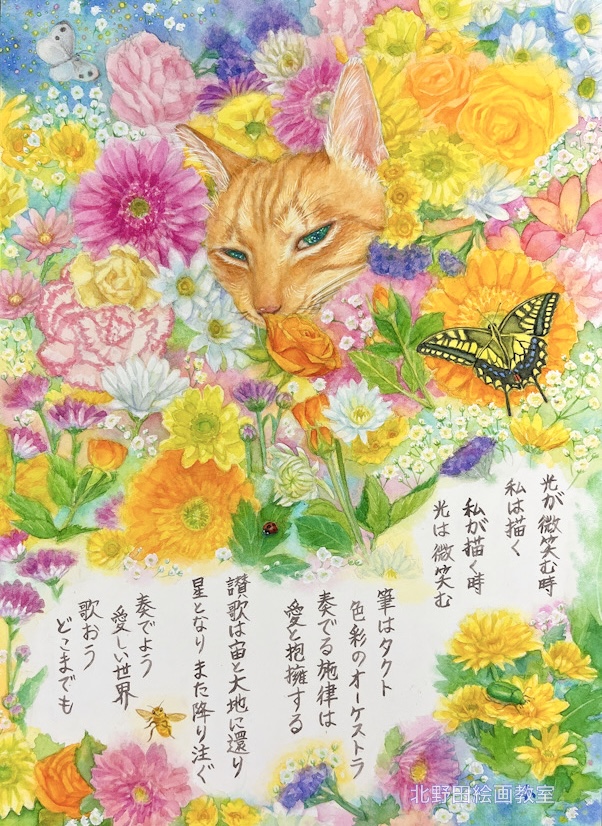 光が微笑む時
私は描く
私が描く時
光は微笑む
筆はタクト
色彩のオーケストラ
奏でる施律は
愛と抱擁する
讃歌は宙と大地に還り
星となり また降り注ぐ
奏でよう
愛しい世界
歌おう
どこまでも
北野田絵画教室